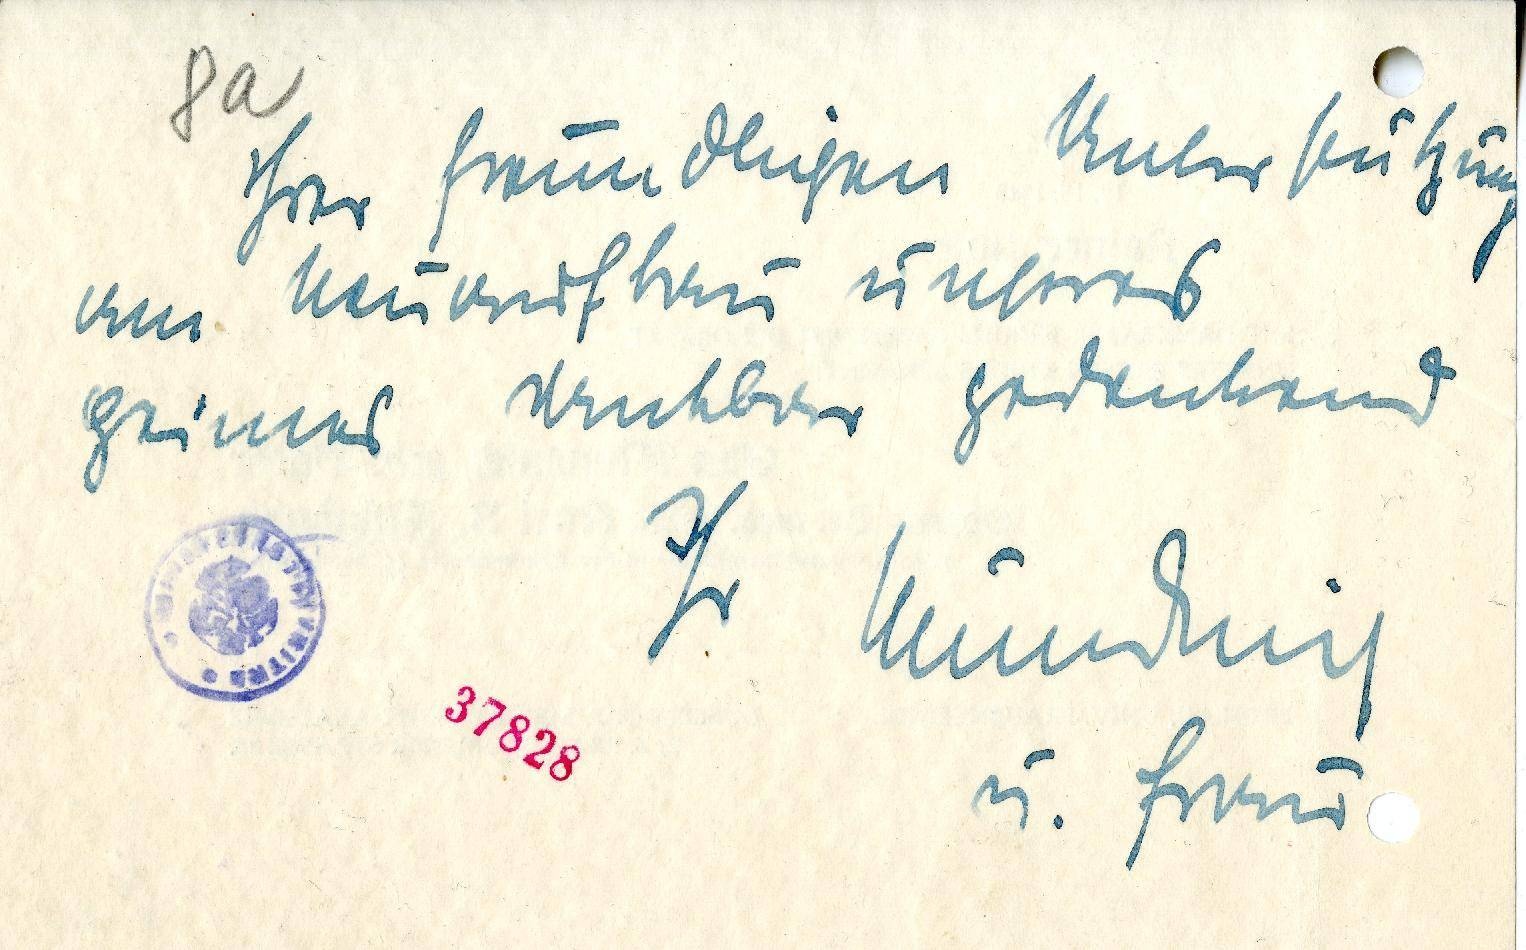 8a
Ihrer freundlichen Unterstützung
am Neuaufbau unseres
Heimes dankbar gedenkend
Ihr Mündnich
u. Frau
MINISTERSTVO VNITRA
37828